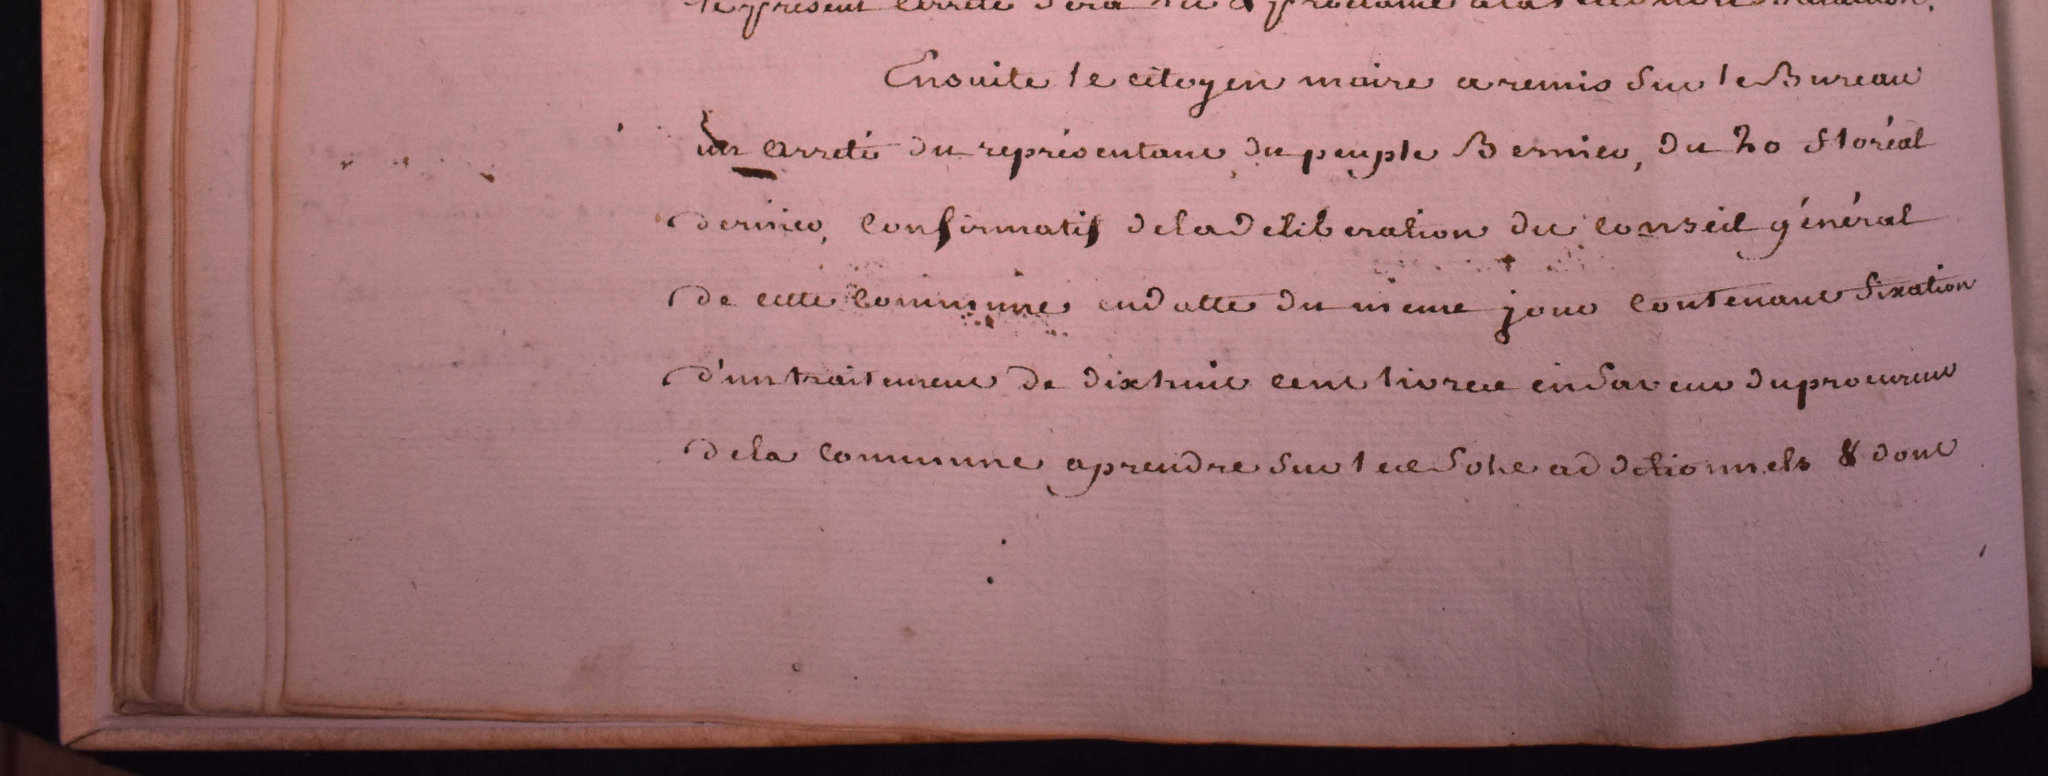 le présent arrêté sera lu & proclamé à la
Ensuite le citoyen maire a remis sur le Bureau
un arreté du représentant du peuple Bernier, du 20 floréal
dernier, confirmatif de la deliberation du conseil général
de cette commune en datte du meme jour contenant fixation
d'un traitement de dixhuit cent livres en faveur du procureur
de la commune a prendre sur les sols additionnels & dont